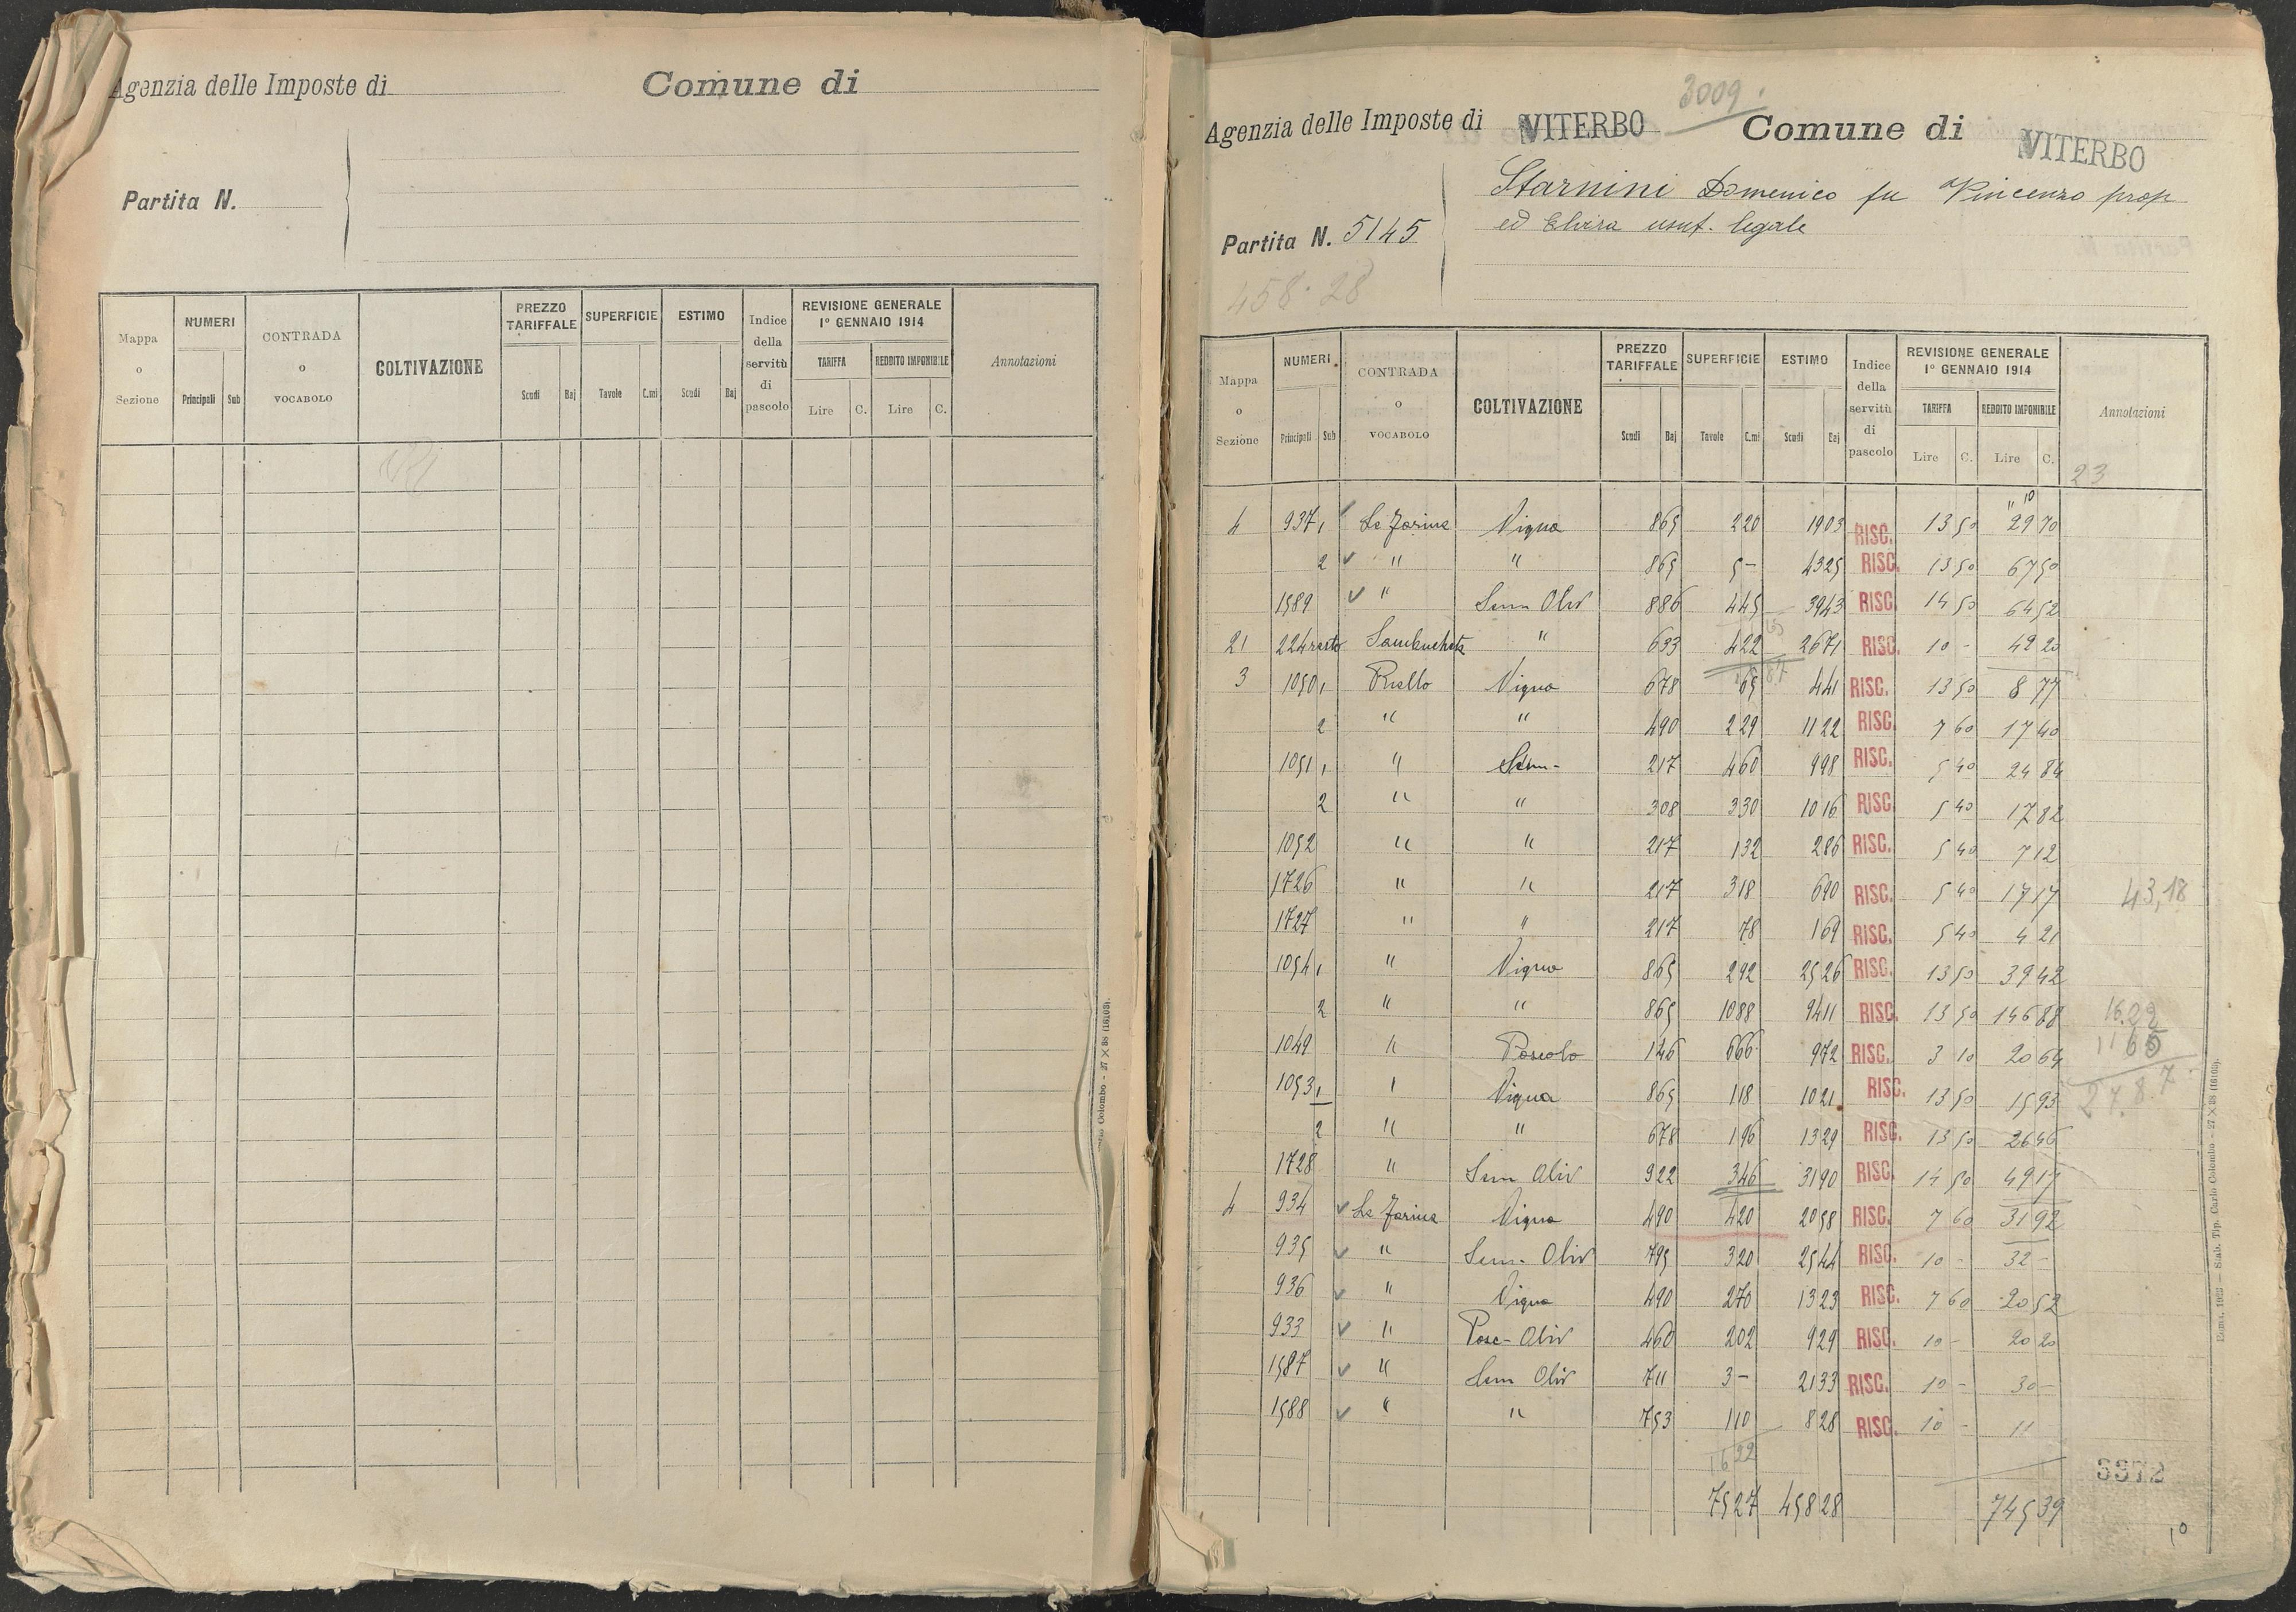 Agenzia delle Imposte di Comune di
Partita N.
Mappa o Sezione NUMERI Principali Sub CONTRADA o VOCABOLO COLTIVAZIONE PREZZO TARIFFALE Scudi Baj SUPERFICIE Tavole C.mi ESTIMO Scudi Baj Indice della servitù di pascolo REVISIONE GENERALE 1º GENNAIO 1914 TARIFFA Lire C. REDDITO IMPONIBILE Lire C. Annotazioni
Colombo - 27 X 38 (16103).
3009.
Agenzia delle Imposte di VITERBO Comune di VITERBO
Starnini Domenico fu Vincenzo prop
ed Elvira usuf. legale
Partita N. 5145
458.28
Mappa o Sezione NUMERI Principali Sub CONTRADA o VOCABOLO COLTIVAZIONE PREZZO TARIFFALE Scudi Baj SUPERFICIE Tavole C.mi ESTIMO Scudi Baj Indice della servitù di pascolo REVISIONE GENERALE 1º GENNAIO 1914 TARIFFA Lire C. REDDITO IMPONIBILE Lire C. Annotazioni
23
4 937 1 Le Farine Vigna 865 220 1903 RISC. 13 50 29 70
2 " " 865 5 - 4325 RISC. 13 50 67 50
1589 " Sem Oliv 886 445 3943 RISC. 14 50 64 52
21 224 resto Sambucheta " 633 422 2671 RISC. 10 - 42 20
3 1050 1 Riello Vigna 678 65 441 RISC. 13 50 8 77
2 " " 490 229 1122 RISC. 7 60 17 40
1051 1 " Sem- 217 460 998 RISC. 5 40 24 84
2 " " 308 330 1016 RISC. 5 40 17 82
1052 " " 217 132 286 RISC. 5 40 7 12
1726 " " 217 318 690 RISC. 5 40 17 17 43,18
1727 " " 217 78 169 RISC. 5 40 4 21
1054 1 " Vigna 865 292 2526 RISC. 13 50 39 42
2 " " 865 1088 9411 RISC. 13 50 146 88 16.22
1049 " Pascolo 146 666 972 RISC. 3 10 20 64 11 65
1053 1 " Vigna 865 118 1021 RISC. 13 50 15 93 27.87
2 " " 678 196 1329 RISC. 13 50 26 46
1728 " Sem Oliv 922 346 3190 RISC. 14 50 49 17
4 934 Le Farine Vigna 490 420 2058 RISC. 7 60 31 92
935 " Sem. Oliv 795 320 2544 RISC. 10 - 32 -
936 " Vigna 490 270 1323 RISC. 7 60 20 52
933 " Pasc- Oliv 460 202 929 RISC. 10 - 20 20
1587 " Sem Oliv 711 3 - 2133 RISC. 10 - 30 -
1588 " " 753 110 828 RISC. 10 - 11
1622
3372
7527 45828 745 39
10
Roma, 1922 — Stab. Tip. Carlo Colombo - 27 X 38 (16103).